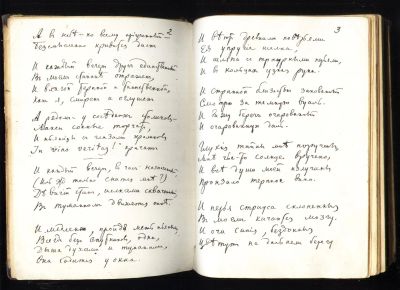 2
А в небѣ, ко всему приученный
Безсмысленно кривится диск

И каждый вечер друг единственный
В моем стаканѣ отражен,
И влагой терпкой и таинственной,
Как я, смирен и оглушен

А рядом у сосѣдних столиков
Лакеи сонные торчат,
И пьяницы с глазами кроликов
"In vino veritas!" кричат

И каждый вечер, в час назначенный
(Иль это только снится мнѣ?)
Дѣвичий стан, шелками схваченный,
В туманном движется окнѣ.

И медленно, пройдя меж пьяными,
Всегда без спутников, одна,
Дыша духами и туманами,
Она садится у окна.

3
И вѣют древними повѣрьями
Ея упругие шелка,
И шляпа с траурными перьями,
И в кольцах узкая рука.

И странной близостью закованный
Смотрю за темную вуаль,
И вижу берег очарованный
И очарованную даль.

Глухия тайны мнѣ поручены,
Мнѣ чье-то солнце вручено,
И всѣ души моей излучины
Пронзило терпкое вино.

И перья страуса склоненные
В моем качаются мозгу,
И очи синие, бездонные
Цвѣтут на дальнем берегу